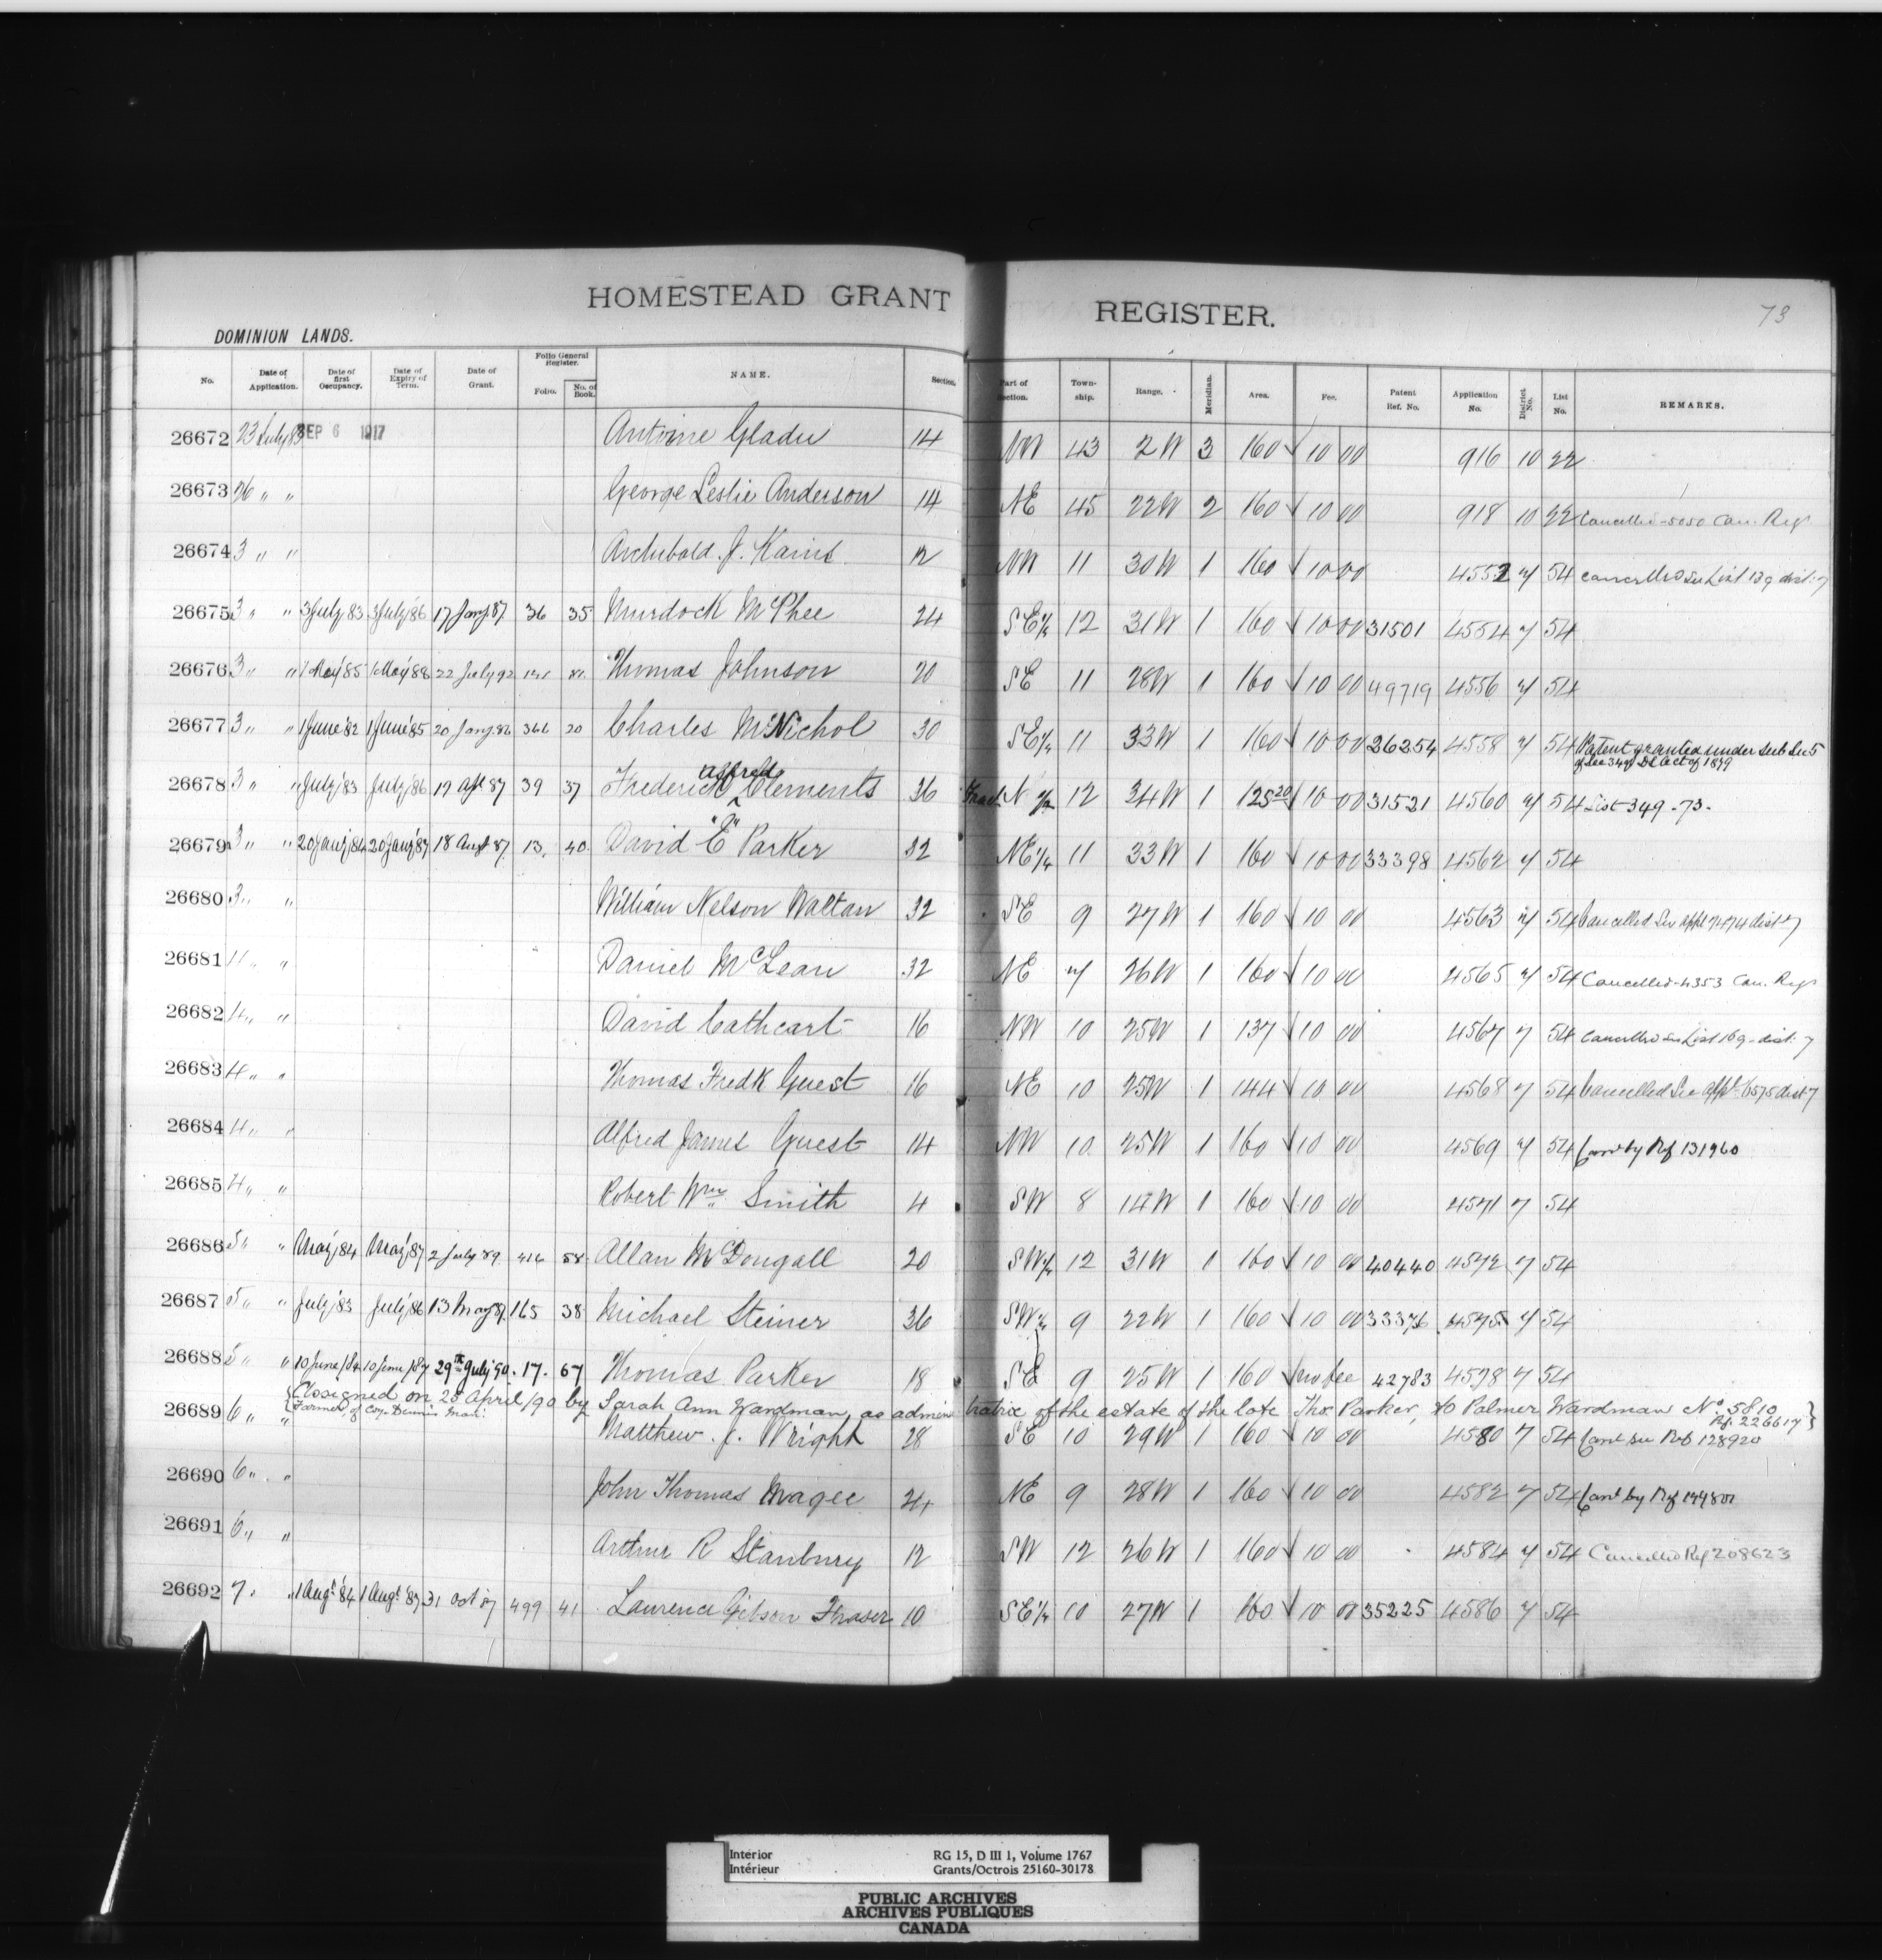 HOMESTEAD GRANT REGISTER.
73
DOMINION LANDS.
No. Date of Application. Date of first Occupancy. Date of Expiry of Term. Date of Grant. Folio General Register. Folio. No. of Book. NAME. Section. Part of Section. Township. Range. Meridian. Area. Fee. Patent Ref. No. Application No. District No. List No. REMARKS.
26672 23 July 83 SEP 6 1917 Antoine Gladu 14 NW 43 2W 3 160 10 00 916 10 22
26673 26 " " George Leslie Anderson 14 NE 45 22W 2 160 10 00 918 10 22 Cancelled - 5050 Can. Regr
26674 3 " " Archibald J. Kains 12 NW 11 30W 1 160 10 00 4552 7 54 Cancelled See List 139 dist: 7
26675 3 " " 3 July 83 3 July '86 17 Jany 87 36 35 Murdock McPhee 24 SE¼ 12 31W 1 160 10 00 31501 4554 7 54
26676 3 " " 1 May '85 1 May '88 22 July 92 Thomas Johnson 20 SE 11 28W 1 160 10 00 49719 4556 7 54
26677 3 " " 1 June '82 1 June '85 20 Jany. 86 366 20 Charles McNichol 30 SE¼ 11 33W 1 160 10 00 26254 4558 7 54 Patent granted under Sub Sec 5
of Sec 34 of DL Act of 1879
26678 3 " " July '83 July '86 19 Apl 87 39 37 Frederick Alfred Clements 36 Fract N ½ 12 34W 1 125 20 10 00 31521 4560 7 54 List 349 - 73 -
26679 3 " " 20 Jany '84 20 Jany '87 18 Augt 87 13. 40 David "E" Parker 32 NE¼ 11 33W 1 160 10 00 33398 4562 7 54
26680 3 " " William Nelson Waltan 32 SE 9 27W 1 160 10 00 4563 7 54 Cancelled See appl 7474 dist 7
26681 " " Daniel McLean 32 NE 7 26W 1 160 10 00 4565 7 54 Cancelled - 4353 Can. Regr
26682 4 " " David Cathcart 16 NW 10 25W 1 137 10 00 4567 7 54 Cancelled See List 169 - dist: 7
26683 4 " " Thomas Fredk Guest 16 NE 10 25W 1 144 10 00 4568 7 54 Cancelled See appl 6575 dist 7
26684 4 " " Alfred James Guest 14 NW 10 25W 1 160 10 00 4569 7 54 Cand by Ref 131960
26685 4 " " Robert Wm Smith 4 SW 8 14W 1 160 10 00 4571 7 54
26686 5 " " May '84 May '87 2 July 89 416 58 Allan McDougall 20 SW¼ 12 31W 1 160 10 00 40440 4572 7 54
26687 5 " " July '83 July '86 13 May 87. 165 38 Michael Steiner 36 SW¼ 9 22W 1 160 10 00 33376 4575 7 54
26688 5 " " 10 June /84 10 June /87 29th July 90. 17. 67 Thomas Parker 18 SE 9 25W 1 160 no fee 42783 4578 7 54
{Assigned on 28 April/90 by Sarah Ann Wardman, as administratrix of the estate of the late Thos Parker, to Palmer Wardman No 5810
Farmer, of Coy. Dennis Man: Rf. 226617}
26689 6 " " Matthew J. Wright 28 SE 10 29W 1 160 10 00 4580 7 54 Cand see Ref 128920
26690 6 " " John Thomas Magee 24 NE 9 28W 1 160 10 00 4582 7 54 Cand by Ref
26691 6 " " Arthur R Stanbury 12 SW 12 26W 1 160 10 00 4584 7 54 Cancelled Ref 208623
26692 7. " 1 Augt '84 1 Augt '87 31 Oct 87 499 41 Laurence Gibson Fraser 10 SE¼ 10 27W 1 160 10 00 35225 4586 7 54
Interior RG 15, D III 1, Volume 1767
Intérieur Grants/Octrois 25160-30178
PUBLIC ARCHIVES
ARCHIVES PUBLIQUES
CANADA